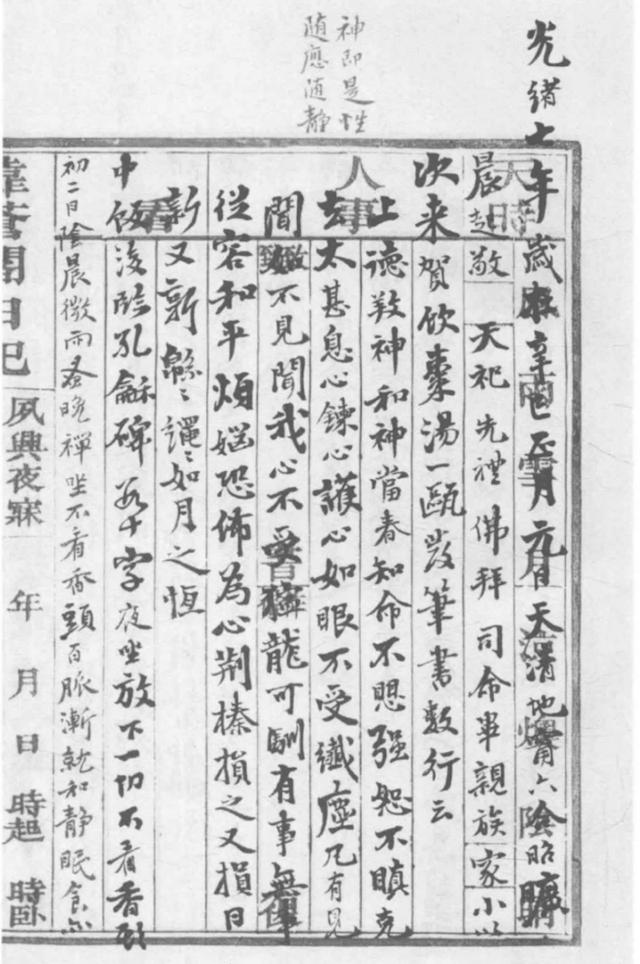 神即是性
随應随静
光緒七年歲在辛巳正月元日天清地甯六陰昭曠
晨起敬天祀先禮佛拜司命畢親族家小以
次来賀飲棗湯一甌發筆書數行云
上德敦神和神當春知命不愳强恕不瞋克
去太甚息心鍊心護心如眼不受纖塵凡有見
聞如不見聞我心不受獰龍可馴有事無事
從容和平煩惱恐怖為心荆榛損之又損日
新又新緜〻繩〻如月之恆
中飯後臨孔龢碑若干字夜坐放下一切不看香頭
初二日陰晨微雨蚤晚禪坐不看香頭百脈漸就和静眠食亦
日記 夙興夜寐 年 月 日 時起 時卧
天時
人事